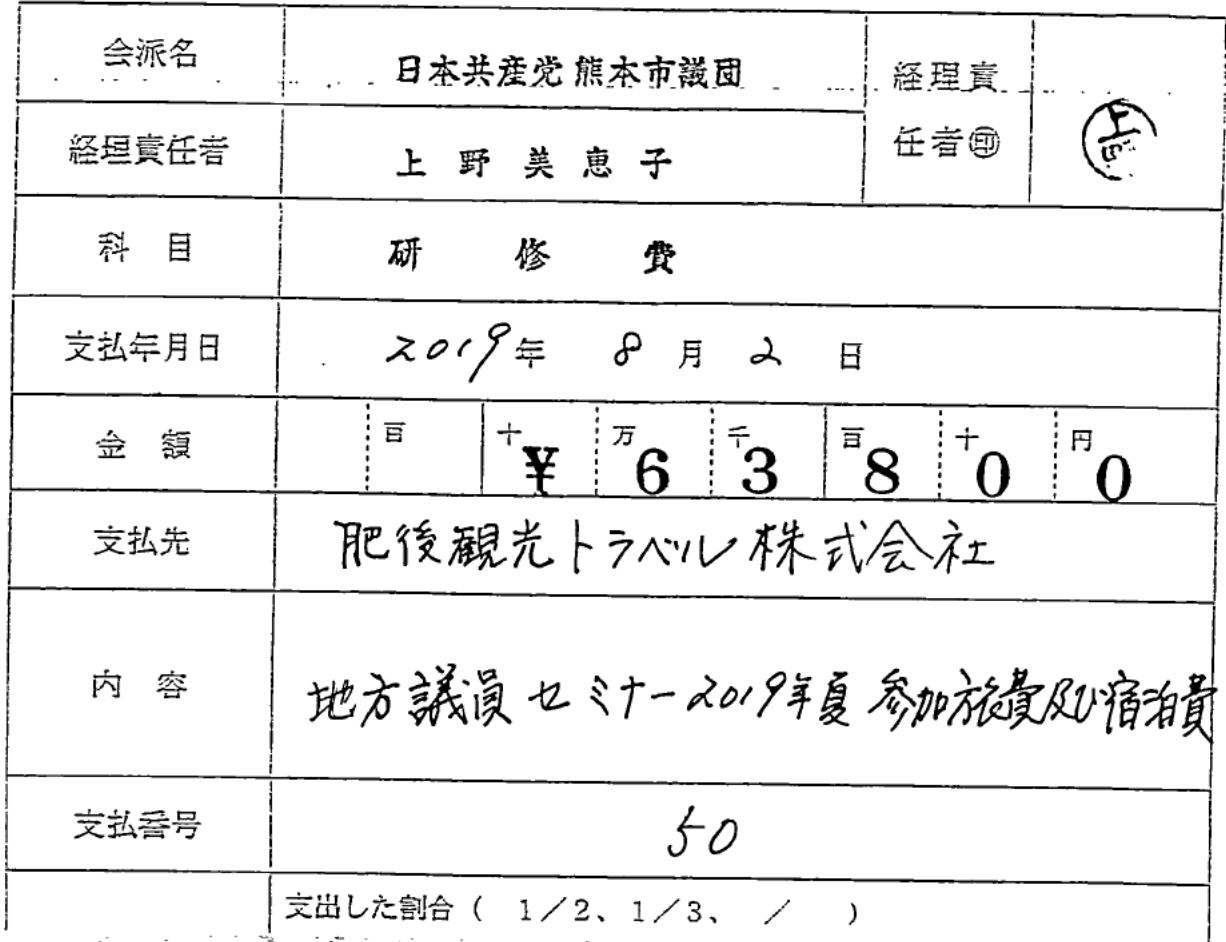 会派名 日本共産党 熊本市議団 経理責
経理責任者 上野美恵子 任者㊞
科 目 研 修 費
支払年月日 2019年 8月 2日
金 額 百 十 万 千 百 十 円
¥63800
支払先 肥後観光トラベル株式会社
内 容 地方議員セミナー2019年夏 参加旅費及び宿泊費
支払番号 50
支出した割合( 1/2、1/3、 / )